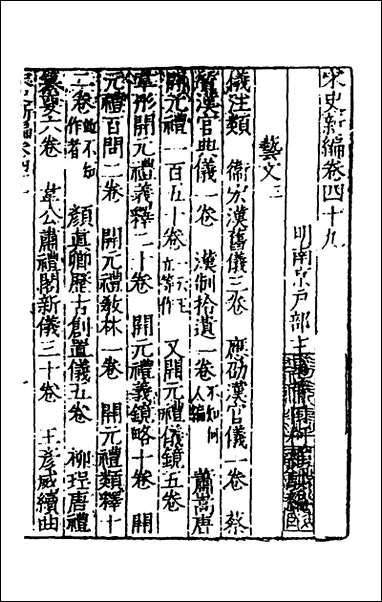 宋史新編卷四十九
明南京戶部主
藝文三
儀注類 衞宏漢舊儀三卷 應劭漢官儀一卷 蔡
質漢官典儀一卷 漢制拾遺一卷不知何人編 蕭嵩唐
開元禮一百五十卷 又開元禮儀鏡五卷
韋彤開元禮義釋二十卷 開元禮義鏡略十卷 開
元禮百問二卷 開元禮教林一卷 開元禮類釋十
二卷並不知作者 顏真卿歷古創置儀五卷 柳珵唐禮
纂要六卷 韋公肅禮閣新儀三十卷 王彥威續曲